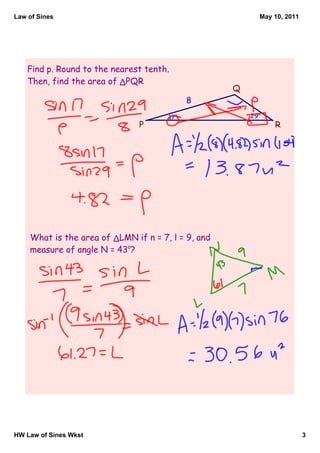 Law of Sines
May 10, 2011
Find p. Round to the nearest tenth.
Then, find the area of △PQR
sin 17 / p = sin 29 / 8
8 sin 17 / sin 29 = p
4.82 = p
Q
8
p
17°
29°
P
R
A = ½ (8)(4.82) sin (134)
= 13.87 u²
What is the area of △LMN if n = 7, l = 9, and
measure of angle N = 43°?
sin 43 / 7 = sin L / 9
sin⁻¹ ((9 sin 43) / 7) = sin L
61.27 = L
N
9
43
M
61
7
L
A = ½ (9)(7) sin 76
= 30.56 u²
HW Law of Sines Wkst
3